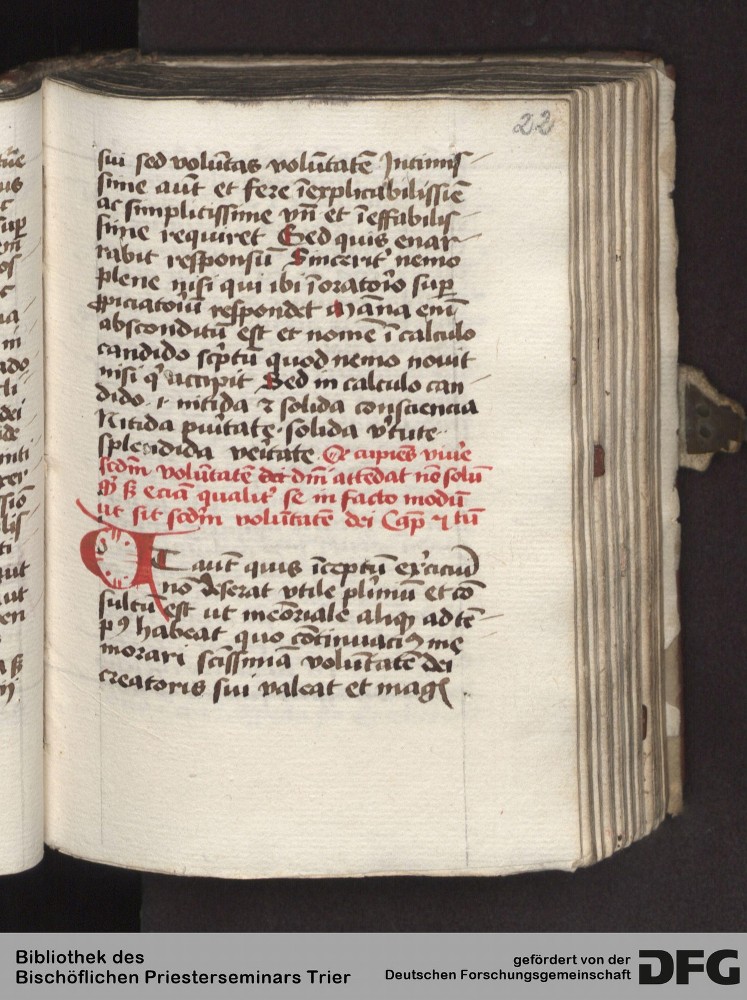 22
sui sed volu̅tas volu̅tate̅ Intimis
sime aut̅ et fere i̅explicabilissie̅
ac simplitissime vn̅ et i̅effabilis
sime requiret Sed quis enar
rabit respo̅nsu̅ Sincerit᾽ nemo
plene nisi qui ibi i̅ oratorio sup̲
ꝓpiciatoriu̅ respondet Ma̅na eni̅
absconditu̅ est et nome̅ i̅ calculo
candido sc᾽ptu̅ quod nemo nouit
nisi q᾽ accipit Sed in calculo can
dido .i. nitida ⁊ solida consciencia
Nitida pu᾽itate, solida v᾽tute
splendida ve᾽itate Qr̅ cupie̅s viue᾽e
scd̅m volu̅tate̅ dei dn̅i atte̅dat no̅ solu̅
sꝫ ecia̅ qualit᾽ se in facto modu̅
ut sit scd̅m volu̅tate̅ dei Cap̅
Ut aut̅ quis i̅ceptu̅ ex᾽ciciu̅
no̅ deserat vtile pl᾽imu̅ et co̅
sultu̅ est ut me̅oriale aliq ad te̅
pꝰ habeat quo co̅tinuaciꝰ me̅
morari sc̅issima̅ volu̅tate̅ dei
creatoris sui valeat et mag
Bibliothek des
Bischöflichen Priesterseminars Trier
gefördert von der
Deutschen Forschungsgemeinschaft
DFG